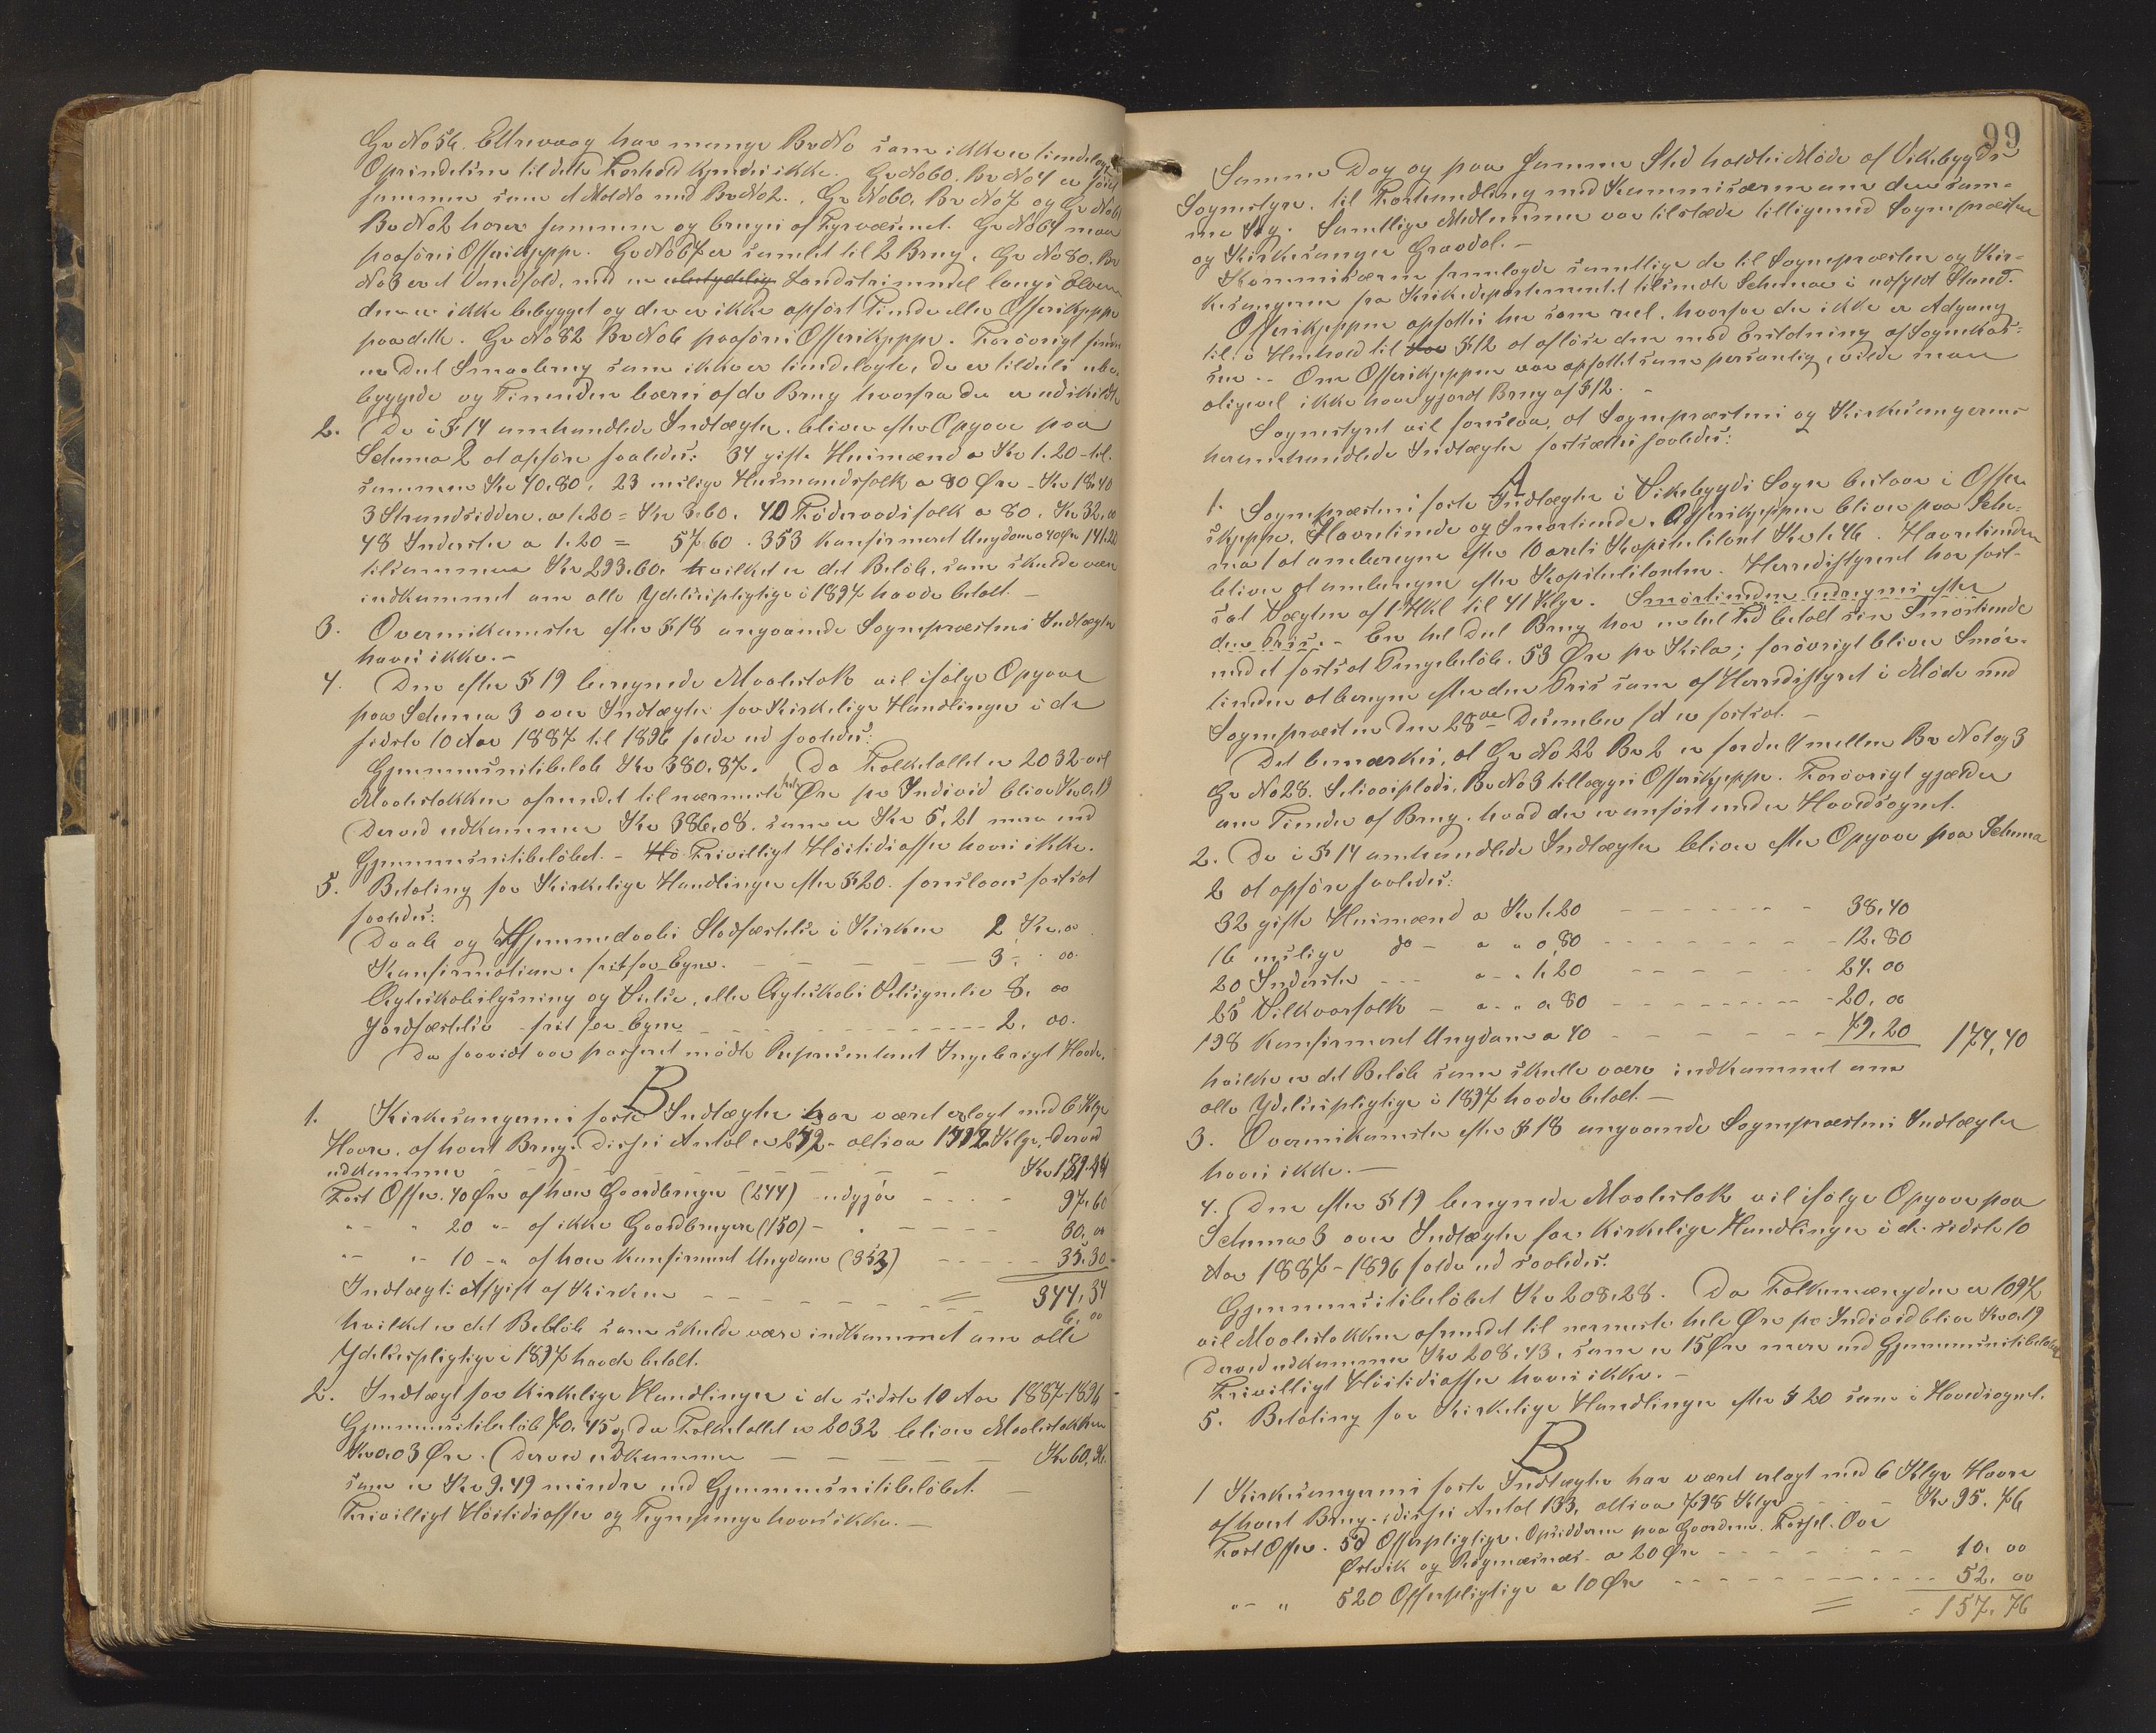 Gr No 56. Ettrevaag har mange Br No som ikke er tiendelagt
Oprindelsen til dette Forhold kjendes ikke. Gr No 60. Br No 4 er først
sammen som et MatNo med Br No 2. Gr No 60, Br No 7 og Gr No 61
Br No 2 hører sammen og bruges af Fyrvæsenet. Gr No 64 maa
paaføres Offerskjeppe. Gr No 67 er samlet til 2 Brug. Gr No 80. Br
No 3 er et Vandfald, med en ubetydelig Landstrimmel langs Elven
den er ikke bebygget og der er ikke opført Tiende eller Offerskjeppe
paa dette. Gr No 82 Br No 6 paaføres Offerskjeppe. Forøvrigt findes
en Del Smaabrug som ikke er tiendelagte, de er tildels ube-
byggede og Tienden bæres af de Brug hvorfra de er udskildte
2. De i § 14 omhandlede Indtægter bliver efter Opgave paa
Schema 2 at opføre saaledes: 34 gifte Husmænd a Kr 1.20 - til-
sammen Kr 40.80, 23 enslige Husmandsfolk a 80 Øre - Kr 18.40
3 Strandsiddere a 1.20 = Kr 3.60. 40 Føderaadsfolk a 80. Kr 32.00
48 Inderster a 1.20 = 57.60. 353 konfirmeret Ungdom a 40 Øre 141.20
tilsammen Kr 293.60, hvilket er det Beløb, som skulde være
indkommet om alle Ydelsespligtige i 1897 havde betalt. -
3. Overenskomster efter § 18 angaaende Sognepræstens Indtægter
haves ikke. -
4. Den efter § 19 beregnede Maalestok vil ifølge Opgave
paa Schema 3 over Indtægter for Kirkelige Handlinger i de
sidste 10 Aar 1887 til 1896 falde ud saaledes:
Gjennemsnitsbeløb Kr 380.87. Da Folketallet er 2032 vil
Maalestokken afrundet til nærmeste hele Øre pr Individ blive Kr 0.19
Derved udkommer Kr 386.08. som er Kr 5,21 mere end
Gjennemsnitsbeløbet. - Frivilligt Høitidsoffer haves ikke.
5. Betaling for Kirkelige Handlinger efter § 20. foreslaaes fastsat
saaledes:
Daab og Hjemmedaabs Stadfæstelse i Kirken 2 Kr. 00
Konfirmation, frit for Byrd. - - - - - 3. 00
Ægteskabslysning og Vielse, eller Ægteskabs Velsignelse 8. 00
Jordfæstelse - frit for Byrd - - - - - 2. 00.
Da saavidt var passeret mødte Repræsentant Ingebrigt Havde.
B
1. Kirkesangerens faste Indtægter har været erlagt med 6 Klgr
Havre, af hvert Brug. Disses Antal er 272 - altsaa Klgr. - Derved
udkommer - - - - - Kr 181.44
Fast Offer. 40 Øre af hver Gaardbruger (244) udgjør - - - 97.60
" - " 20 " - af ikke Gaardbrugere (150) - - - - 30.00
" - " 10 - " af hver konfirmeret Ungdom (353) - - - 35.30
Indtægt: Afgift af Kirken - - - - = 344,34
6.00
hvilket er det Beløb som skulde være indkommet om alle
Ydelsespligtige i 1897 havde betalt.
2. Indtægt for Kirkelige Handlinger i de sidste 10 Aar 1887-1896
Gjennemsnitsbeløb 70.45 og da Folketallet er 2032 bliver Maalestokken
Kr 0.03 Øre. Derved udkommer - - - - - Kr 60,96.
som er Kr 9.49 mindre end Gjennemsnitsbeløbet. -
Frivilligt Høitidsoffer og haves ikke. -
99
Samme Dag og paa Samme Sted holdtes Møde af Vikebygds
Sognestyre, til Forhandling med Kommisæren om den sam-
me Sag. Samtlige Medlemmer var tilstede tilligemed Sognepræsten
og Kirkesanger Gravdal. -
Kommisæren fremlagde samtlige de til Sognepræsten og Kir-
kesangeren fra Kirkedepartementet tilsendte Schemaer i udfyldt Stand.
Offerskjeppen opfattes her som reel, hvorfor der ikke er Adgang
til, i Henhold til § 12 at afløse den mod Erstatning af Sognekas-
sen. - Om Offerskjeppen var opfattet som personlig, vilde man
aligevel ikke have gjort Brug af § 12. -
Sognestyret vil foreslaa, at Sognepræstens og Kirkesangerens
heromhandlede Indtægter fastsættes saaledes:
A
1. Sognepræstens faste Indtægter i Vikebygds Sogn bestaar i Offer-
skjeppe, Havretiende og Smørtiende. Offerskjeppen bliver paa Sche-
ma 1 at omberegne efter 10 aarets Kapiteltakst Kr 1.46. Havretienden
bliver at omberegne efter Kapiteltaksten. Herredstyret har fast-
sat Vægten af 1 Hkl til 41 Klgr. Smørtienden udregnes efter
den Pris. - En hel Del Brug har en hel Tid betalt sin Smørtiende
med et fastsat Pengebeløb, 53 Øre pr Kilo; forøvrigt bliver Smør-
tienden at beregne efter den Pris som af Herredstyret i Møde med
Sognepræsten den 28de Desember f A er fastsat. -
Det bemærkes, at Gr No 22 Br 2 er fordelt mellem Br No 1 og 3
Gr No 28. Br No 3 tillægges Offerskjeppe. Forøvrigt gjælder
om Tiender af Brug, hvad der er anført under Hovedsognet.
2. De i § 14 omhandlede Indtægter bliver efter Opgave paa Schema
2 at opføre saaledes:
32 gifte Husmænd a Kr 1.20 - - - - - 38.40
16 enslige do - a " 0.80 - - - - - 12.80
20 Inderster - - a - " 1.20 - - - - 24.00
25 Vilkaarsfolk - a - " 0.80 - - - - - 20.00
198 konfirmeret Ungdom a 40 - - - - - 79.20 174,40
hvilke er det Beløb som skulle være indkommet om
alle Ydelsespligtige i 1897 havde betalt. -
3. Overenskomster efter § 18 angaaende Sognepræstens Indtægter
haves ikke. -
4. Den efter § 19 beregnede Maalestok vil ifølge Opgave paa
Schema 3 over Indtægter for Kirkelige Handlinger i de sidste 10
Aar 1887-1896 falde ud saaledes:
Gjennemsnitsbeløbet Kr 208.28. Da Folkemængden er 1097
vil Maalestokken afrundet til nermeste hele Øre pr Individ blive Kr 0.19
Derved udkommer Kr 208.43, som er 15 Øre mere end Gjennemsnitsbeløbet
Frivilligt Høitidsoffer haves ikke. -
5. Betaling for Kirkelige Handlinger efter § 20 som i Hovedsognet.
B
1 Kirkesangerens faste Indtægter har været erlagt med 6 Klgr Havre
af hvert Brug - disses Antal 133, altsaa 798 Klgr - - - Kr 95.76
Fast Offer. 50 Offerpligtige, Opsiddere paa Gaardene
Ørlvik og a 20 Øre - - - - 10.00
" - " 520 Offerpligtige a 10 Øre - - - - 52.00
= 157.76